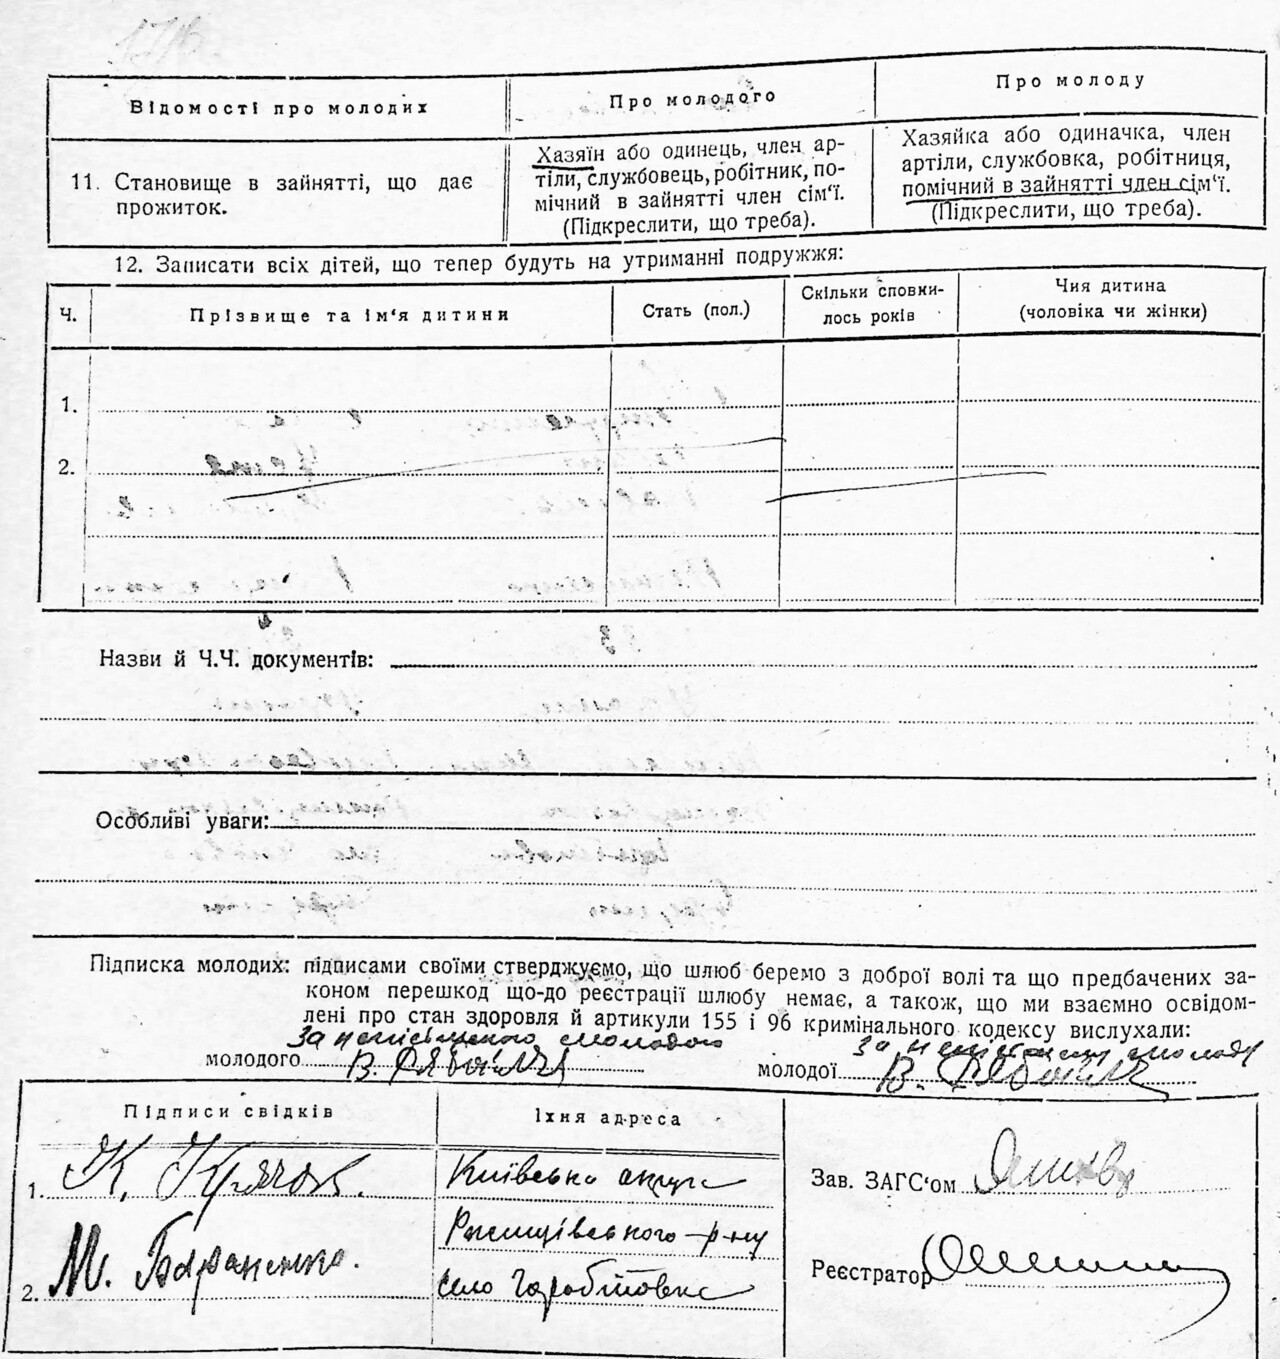 Відомості про молодих
Про молодого
Про молоду
11. Становище в зайнятті, що дає
прожиток.
Хазяїн або одинець, член ар-
тіли, службовець, робітник, по-
мічний в зайнятті член сім'ї.
(Підкреслити, що треба).
Хазяйка або одиначка, член
артіли, службовка, робітниця,
помічний в зайнятті член сім'ї.
(Підкреслити, що треба).
12. Записати всіх дітей, що тепер будуть на утриманні подружжя:
Ч.
Прізвище та ім'я дитини
Стать (пол.)
Скільки сповни-
лось років
Чия дитина
(чоловіка чи жінки)
1.
2.
Назви й Ч.Ч. документів:
Особливі уваги:
Підписка молодих: підписами своїми стверджуємо, що шлюб беремо з доброї волі та що предбачених за-
коном перешкод що-до реєстрації шлюбу немає, а також, що ми взаємно освідом-
лені про стан здоровля й артикули 155 і 96 кримінального кодексу вислухали:
За неписьменого молодого
за неписьмену молоду
молодого В. Рябойла
молодої В. Рябойла
Підписи свідків
Їхня адреса
1. К.
Київська округа
Зав. ЗАГС'ом
Ржищівського р-ну
2. М. Бараненко.
село Горобіївка
Реєстратор